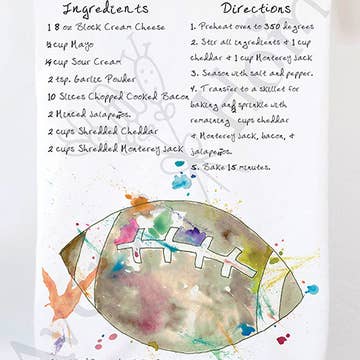 Ingredients
1 8 oz Block Cream Cheese
½ cup Mayo
¼ cup Sour Cream
2 tsp. Garlic Powder
10 Slices Chopped Cooked Bacon
2 Minced Jalapeños.
2 cups Shredded Cheddar
2 cups Shredded Monterey Jack
Directions
1. Preheat oven to 350 degrees
2. Stir all ingredients & 1 cup
cheddar & 1 cup Monterey Jack
3. Season with salt and pepper.
4. Transfer to a skillet for
baking and sprinkle with
remaining cups cheddar
& Monterey Jack, bacon, &
jalapeños.
5. Bake 15 minutes.